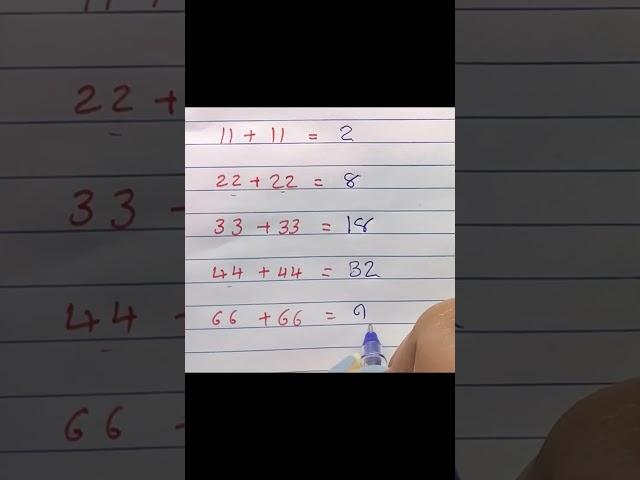 11 + 11 = 2
22 + 22 = 8
33 + 33 = 18
44 + 44 = 32
66 + 66 =